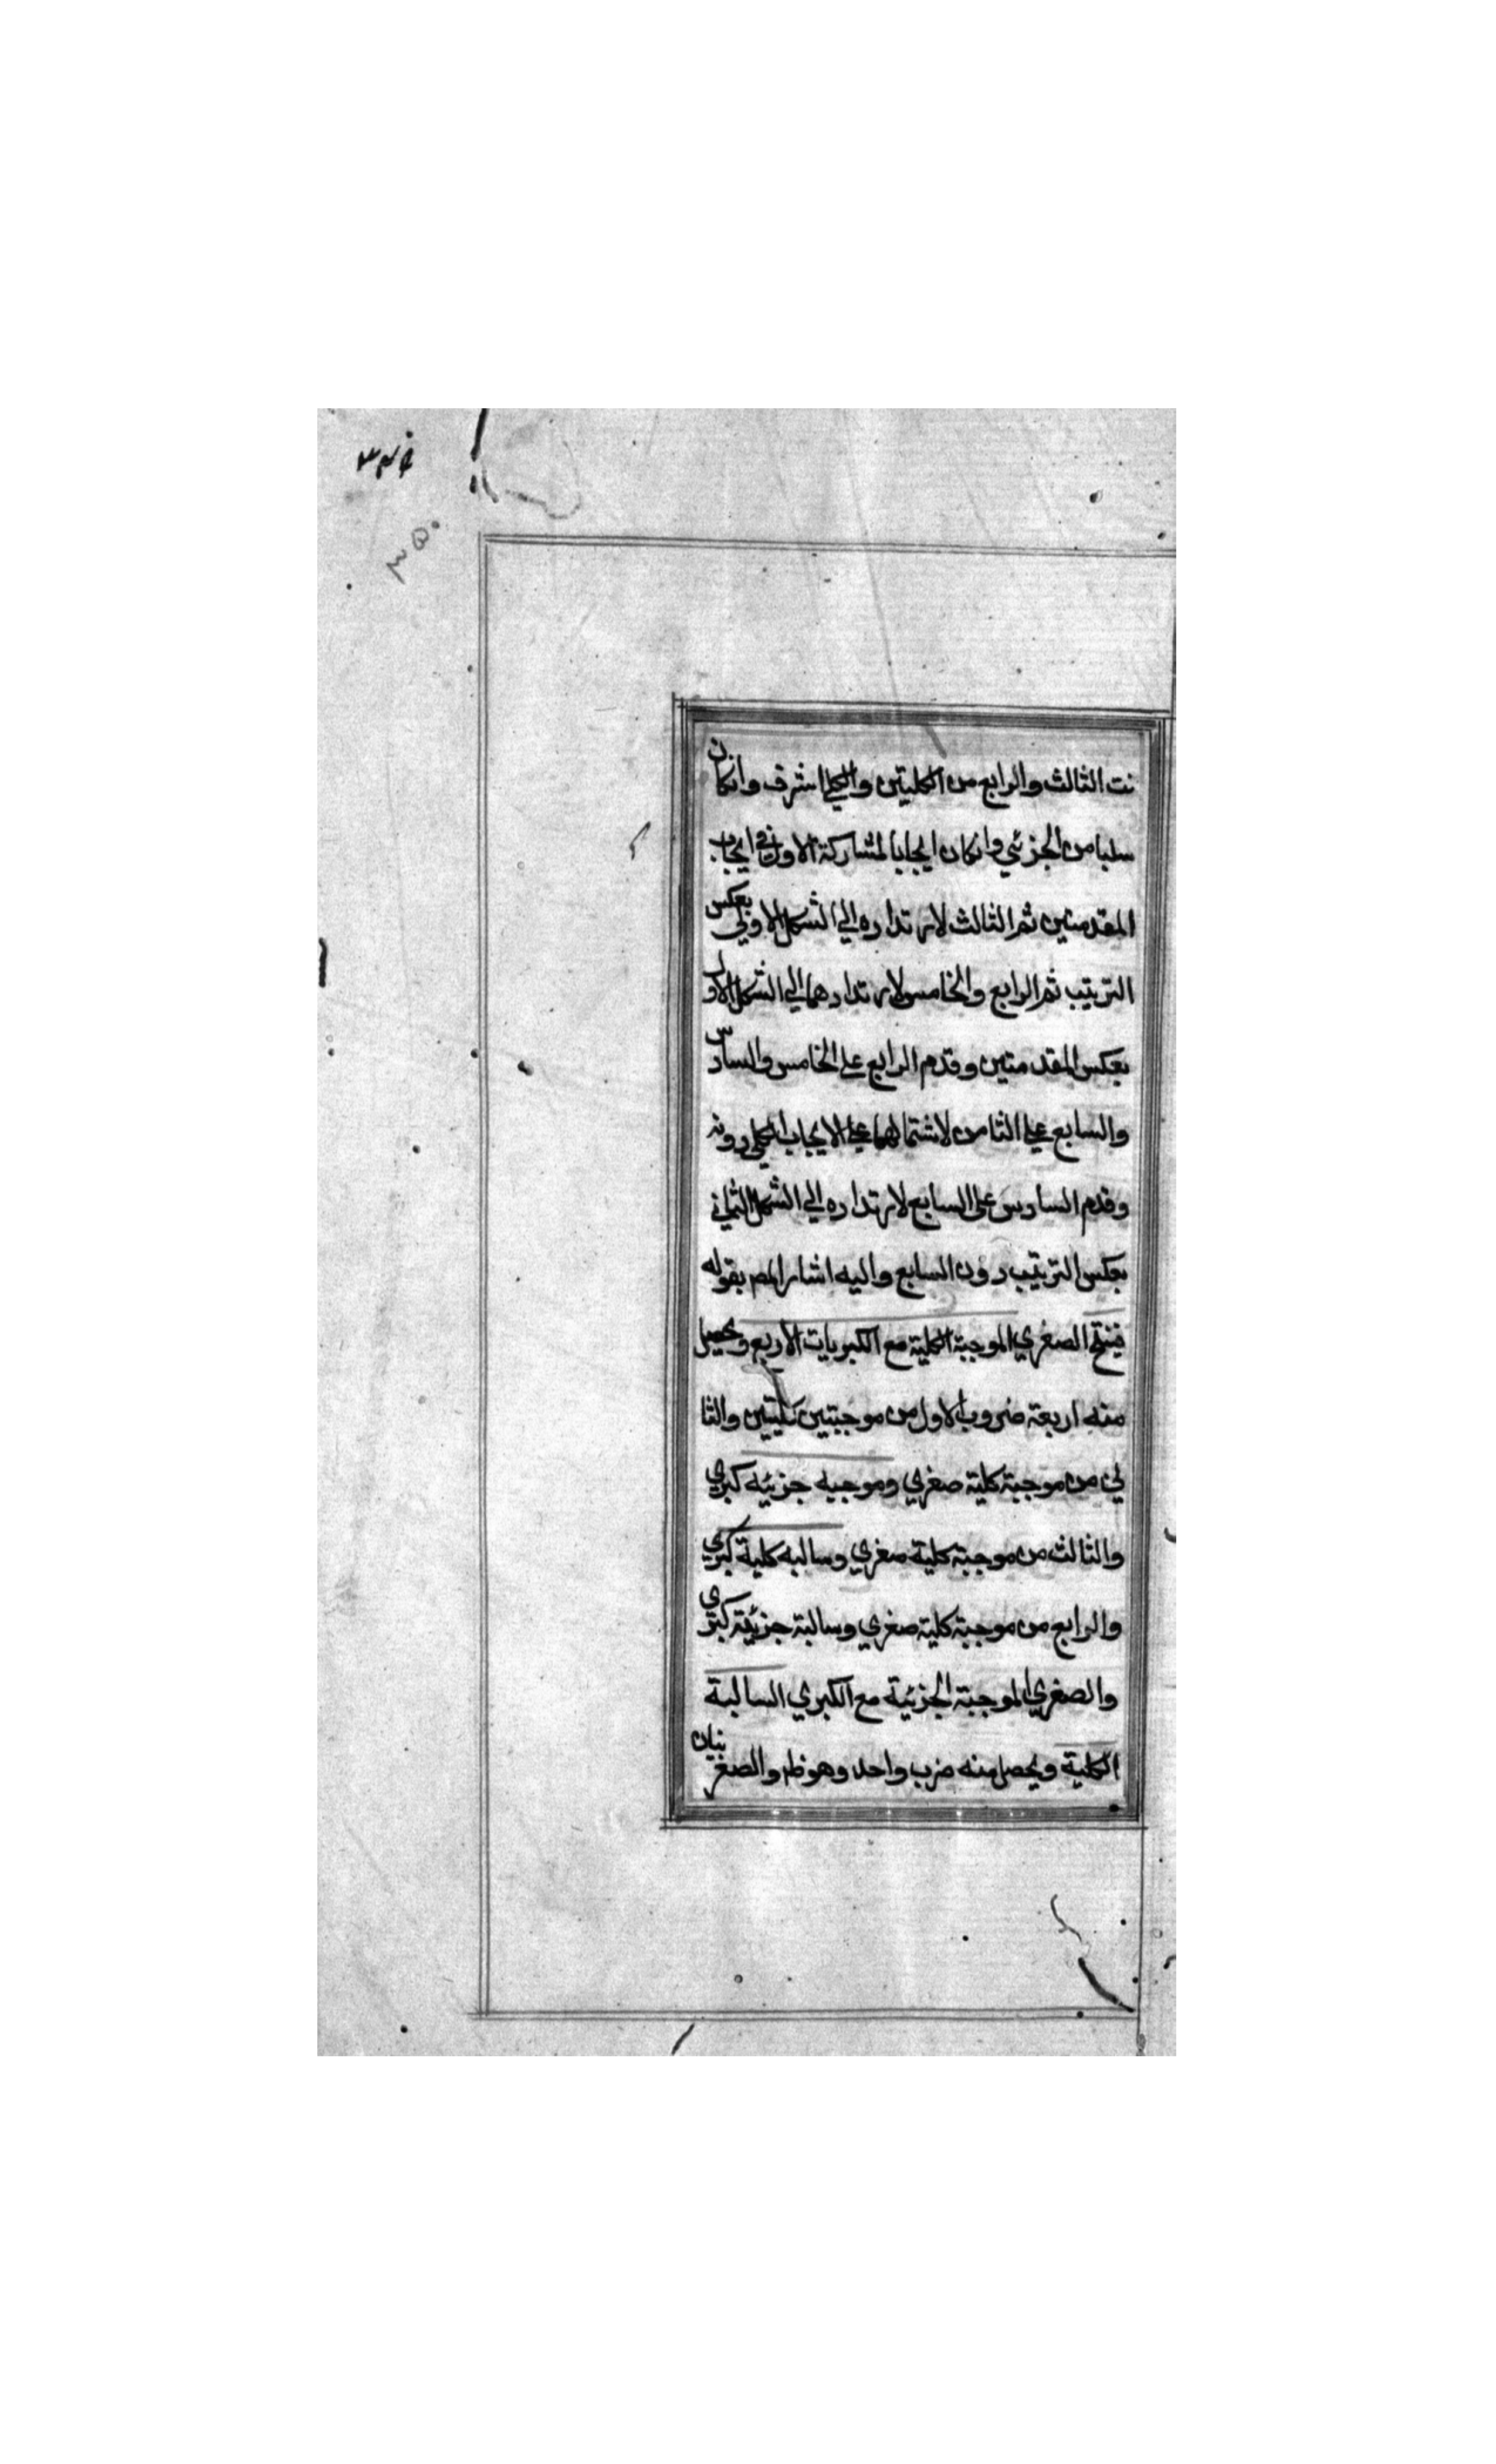 ٣٤٩
٣٥٠
نت الثالث والرابع من الكليتين والكلي اشرف وانكان
سلبا من الجزئي وانكان ايجابا لمشاركة الاول في ايجاب
المقدمتين ثم الثالث لارتداده الي الشكل الاول بعكس
الترتيب ثم الرابع والخامس لارتدادهما الي الشكل الاول
بعكس المقدمتين وقدم الرابع علي الخامس والسادس
والسابع علي الثامن لاشتمالهما علي الايجاب الكلي دونه
وقدم السادس علي السابع لارتداده الي الشكل الثاني
بعكس الترتيب دون السابع واليه اشار المص بقوله
فينتج الصغري الموجبة الكلية مع الكبريات الاربع ويحصل
منه اربعة ضروب الاول من موجبتين كليتين والثا
ني من موجبة كلية صغري وموجبه جزئيه كبري
والثالث من موجبة كلية صغري وسالبه كلية كبري
والرابع من موجبة كلية صغري وسالبة جزئية كبري
والصغري الموجبة الجزئية مع الكبري السالبة
الكلية ويحصل منه ضرب واحد وهو ظ والصغريان